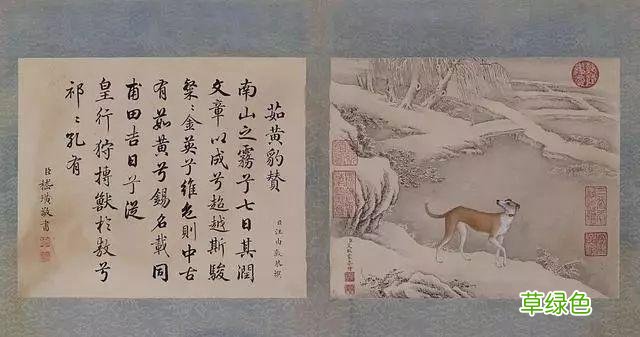 茹黃豹贊
臣汪由敦恭撰
南山之霧兮七日其潤
文章以成兮超越斯駿
粲〻金英兮維色則中古
有茹黃兮錫名載同
甫田吉日兮從
皇行狩搏獸於敖兮
祁〻孔有
臣嵇璜敬書
草绿色